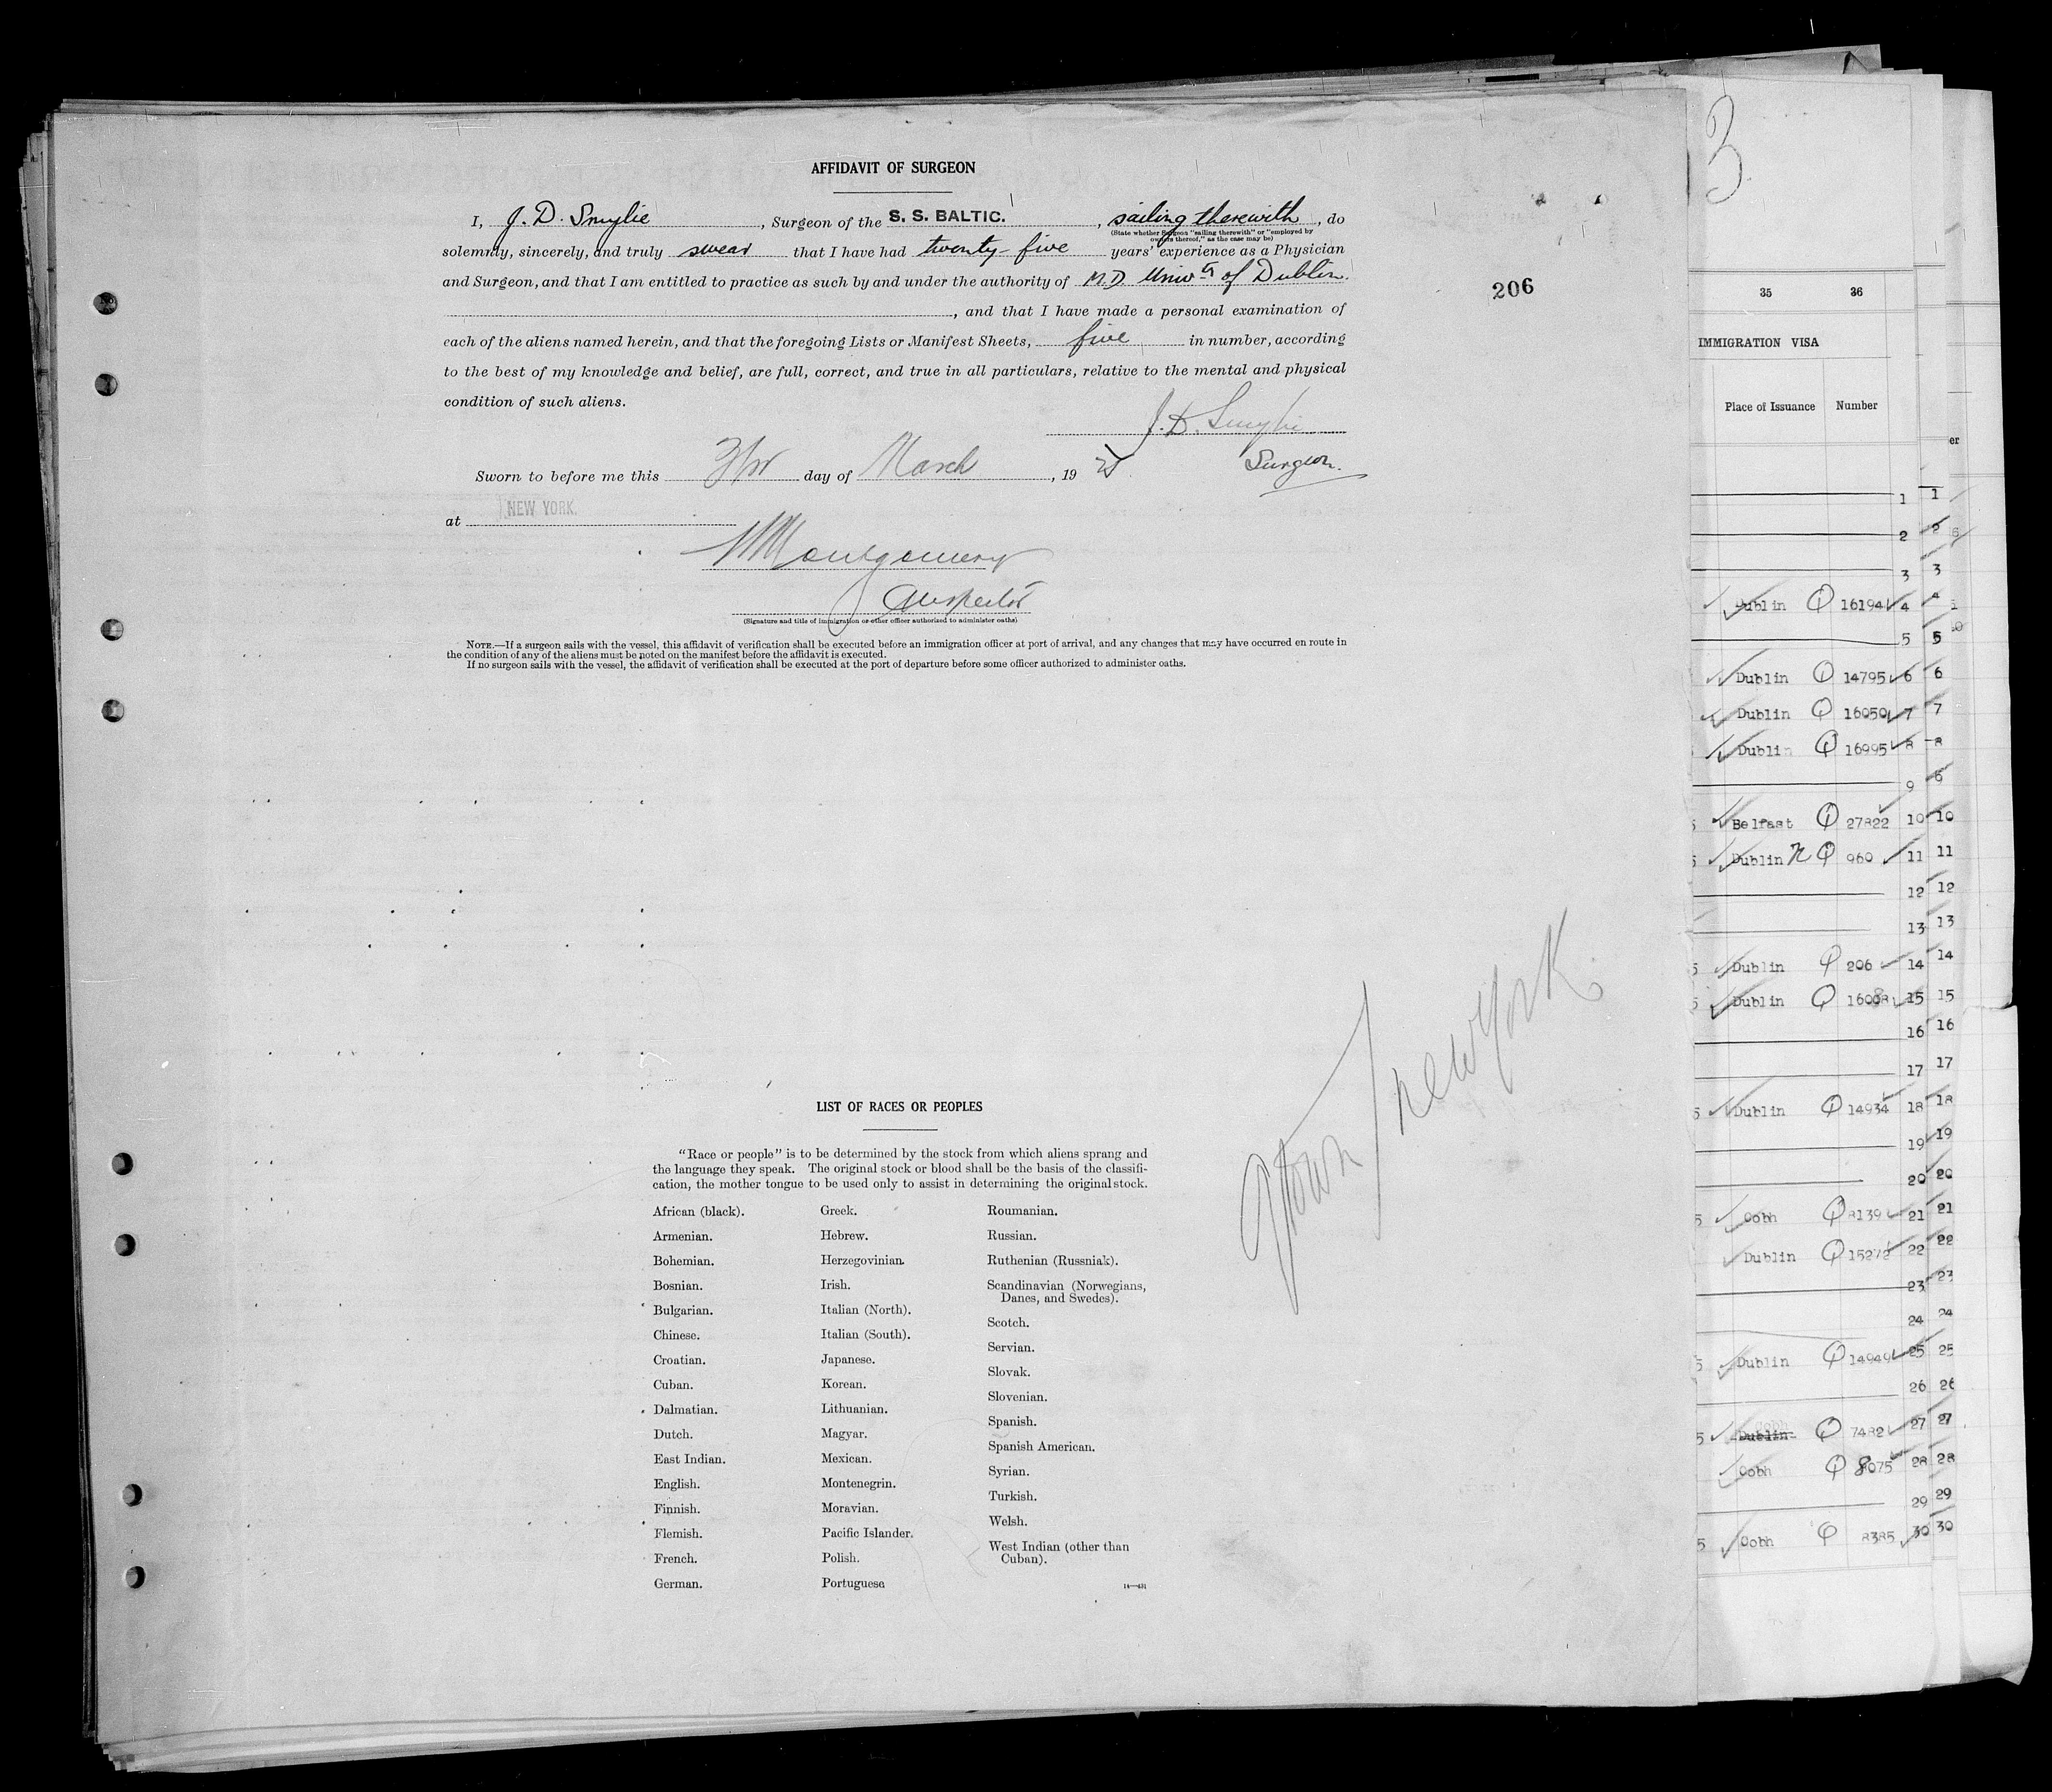 AFFIDAVIT OF SURGEON
I, J. D. Smylie, Surgeon of the S. S. BALTIC., sailing therewith, do
(State whether Surgeon "sailing therewith" or "employed by
owners thereof," as the case may be)
solemnly, sincerely, and truly swear that I have had twenty-five years' experience as a Physician
and Surgeon, and that I am entitled to practice as such by and under the authority of M.D. Univty of Dublin.
, and that I have made a personal examination of
each of the aliens named herein, and that the foregoing Lists or Manifest Sheets, five in number, according
to the best of my knowledge and belief, are full, correct, and true in all particulars, relative to the mental and physical
condition of such aliens.
J. D. Smylie
Surgeon.
Sworn to before me this day of March, 19
at NEW YORK.
Montgomery
Inspector
(Signature and title of immigration or other officer authorized to administer oaths)
NOTE.—If a surgeon sails with the vessel, this affidavit of verification shall be executed before an immigration officer at port of arrival, and any changes that may have occurred en route in
the condition of any of the aliens must be noted on the manifest before the affidavit is executed.
If no surgeon sails with the vessel, the affidavit of verification shall be executed at the port of departure before some officer authorized to administer oaths.
206
Qtown / New York
LIST OF RACES OR PEOPLES
"Race or people" is to be determined by the stock from which aliens sprang and
the language they speak. The original stock or blood shall be the basis of the classifi-
cation, the mother tongue to be used only to assist in determining the original stock.
African (black).
Armenian.
Bohemian.
Bosnian.
Bulgarian.
Chinese.
Croatian.
Cuban.
Dalmatian.
Dutch.
East Indian.
English.
Finnish.
Flemish.
French.
German.
Greek.
Hebrew.
Herzegovinian.
Irish.
Italian (North).
Italian (South).
Japanese.
Korean.
Lithuanian.
Magyar.
Mexican.
Montenegrin.
Moravian.
Pacific Islander.
Polish.
Portuguese
Roumanian.
Russian.
Ruthenian (Russniak).
Scandinavian (Norwegians,
Danes, and Swedes).
Scotch.
Servian.
Slovak.
Slovenian.
Spanish.
Spanish American.
Syrian.
Turkish.
Welsh.
West Indian (other than
Cuban).
14—431
3
35 36
IMMIGRATION VISA
Place of Issuance Number
er
1 1
2 2
3 3
Dublin Q 16194 4 4
5 5
Dublin Q 14795 6 6
Dublin Q 16050 7 7
Dublin Q 16995 8 8
9
Belfast Q 27822 10 10
Dublin Q 960 11 11
12 12
13 13
Dublin Q 206 14 14
Dublin Q 16008 15 15
16 16
17 17
Dublin Q 14934 18 18
19 19
20 20
Cobh Q 8139 21 21
Dublin Q 15272 22 22
23 23
24 24
Dublin Q 14949 25 25
26 26
Cobh
Dublin Q 7482 27 27
Cobh Q 8075 28 28
29 29
Cobh Q 8385 30 30